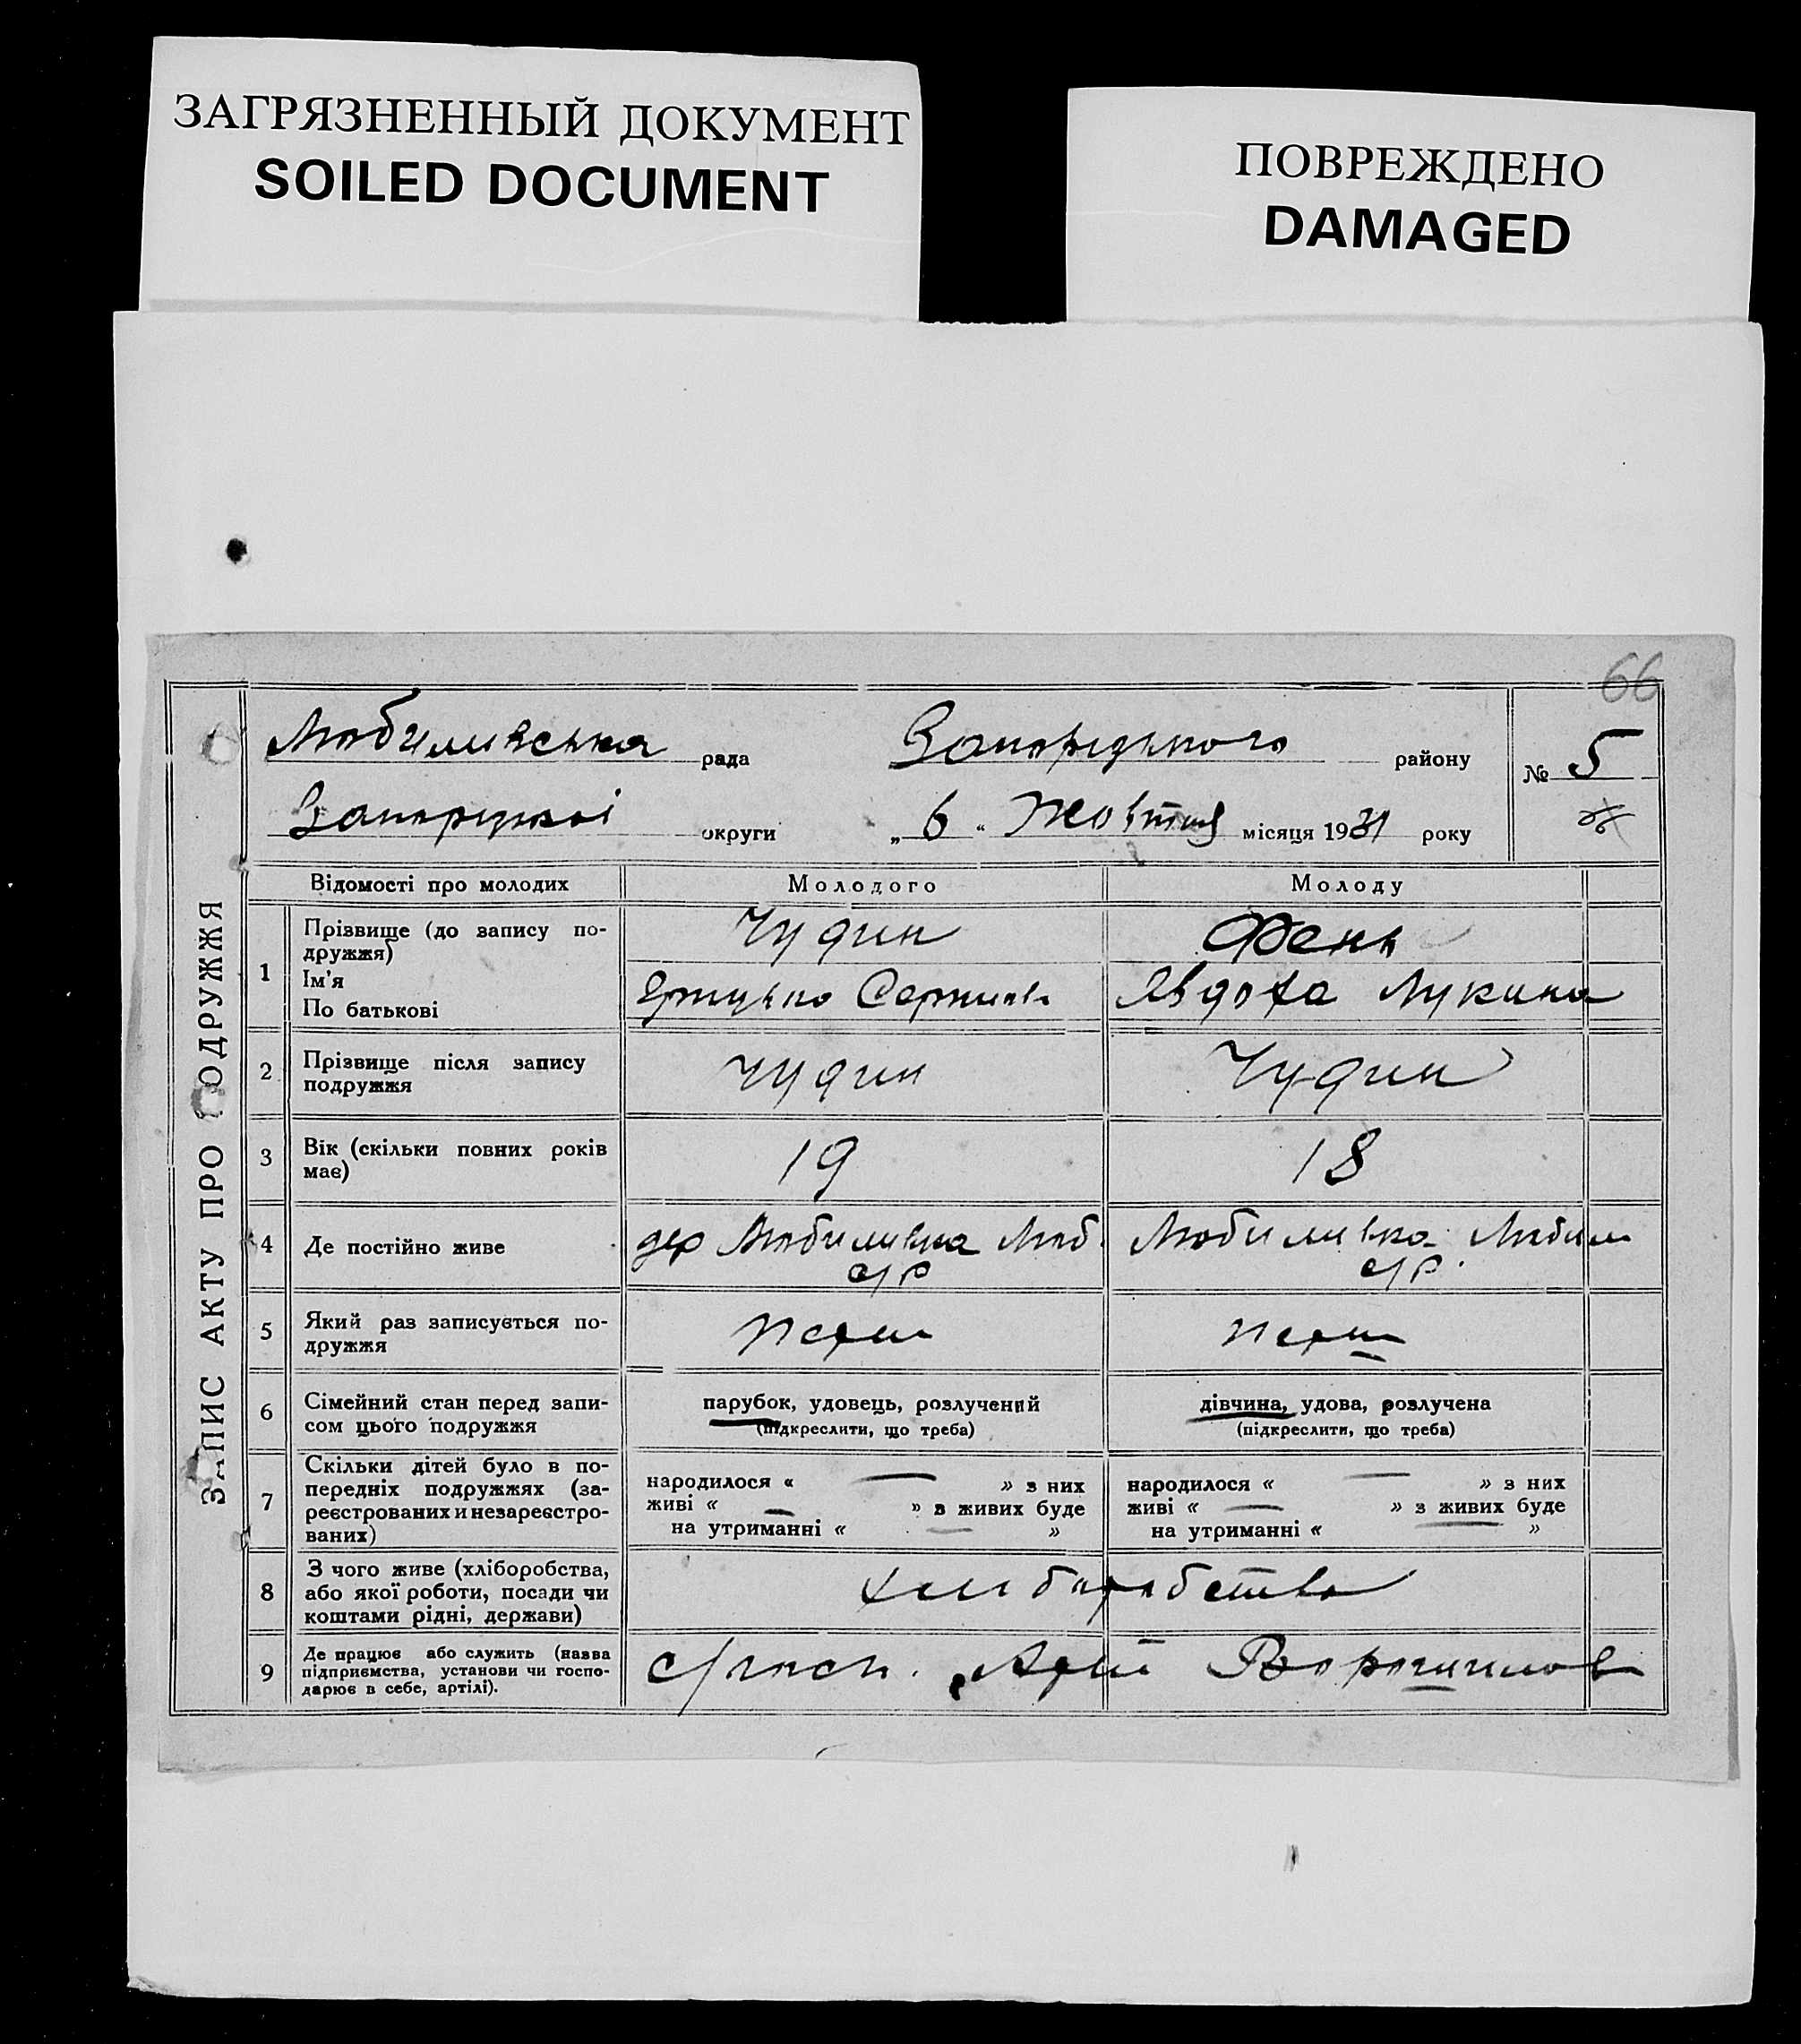 ЗАГРЯЗНЕННЫЙ ДОКУМЕНТ
SOILED DOCUMENT
ПОВРЕЖДЕНО
DAMAGED
66
ЗАПИС АКТУ ПРО ПОДРУЖЖЯ
Любимивська рада
району
№ 5
округи
„ 6 “ Жовтня місяця 1931 року
Відомості про молодих
Молодого
Молоду
1
Прізвище (до запису по-
дружжя)
Ім'я
По батькові
Чудин
Фень
Явдоха Лукина
2
Прізвище після запису
подружжя
Чудин
Чудин
3
Вік (скільки повних років
має)
19
18
4
Де постійно живе
дер Любимивка Люб.
с/р
Любимивка Любим
с/р.
5
Який раз записується по-
дружжя
перш
перш
6
Сімейний стан перед запи-
сом цього подружжя
парубок, удовець, розлучений
(підкреслити, що треба)
дівчина, удова, розлучена
(підкреслити, що треба)
7
Скільки дітей було в по-
передніх подружжях (за-
реєстрованих и незареєстро-
ваних)
народилося « — » з них
живі « — » з живих буде
на утриманні « — »
народилося « — » з них
живі « — » з живих буде
на утриманні « — »
8
З чого живе (хліборобства,
або якої роботи, посади чи
коштами рідні, держави)
хлиборобства
9
Де працює або служить (назва
підприємства, установи чи госпо-
дарює в себе, артілі).
с/госп. Арт Ворошилов